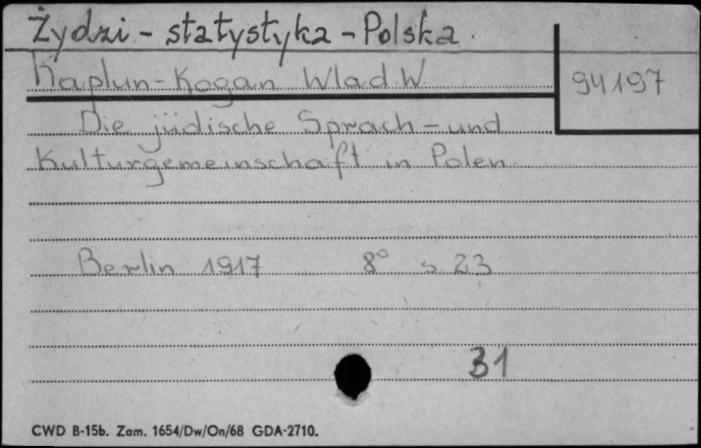 Żydzi - statystyka - Polska.
Kaplun-Kogan Wlad W
94197
Die jüdische Sprach- und
Kulturgemeinschaft in Polen.
Berlin 1917 8° s. 23
31
CWD B-15b. Zam. 1654/Dw/On/68 GDA-2710.